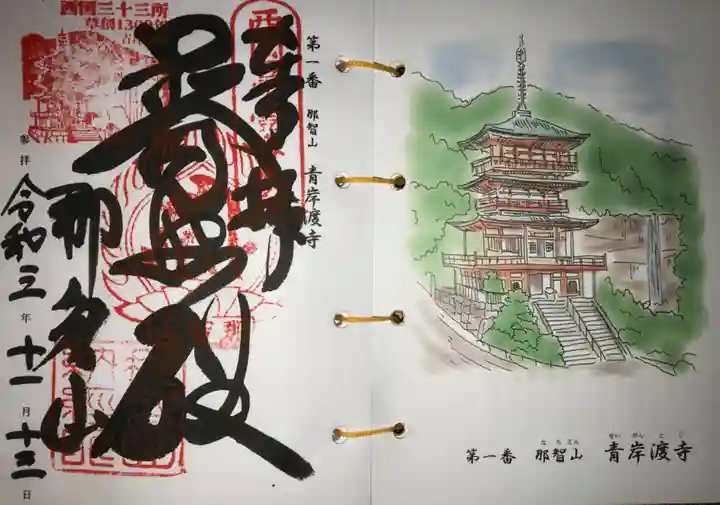 西国三十三所
草創1300年
第一番 那智山 青岸渡寺
奉拝
普照殿
那智山
参拝 令和三年十一月十三日
第一番 那智山 青岸渡寺
なちさん せいがんとじ